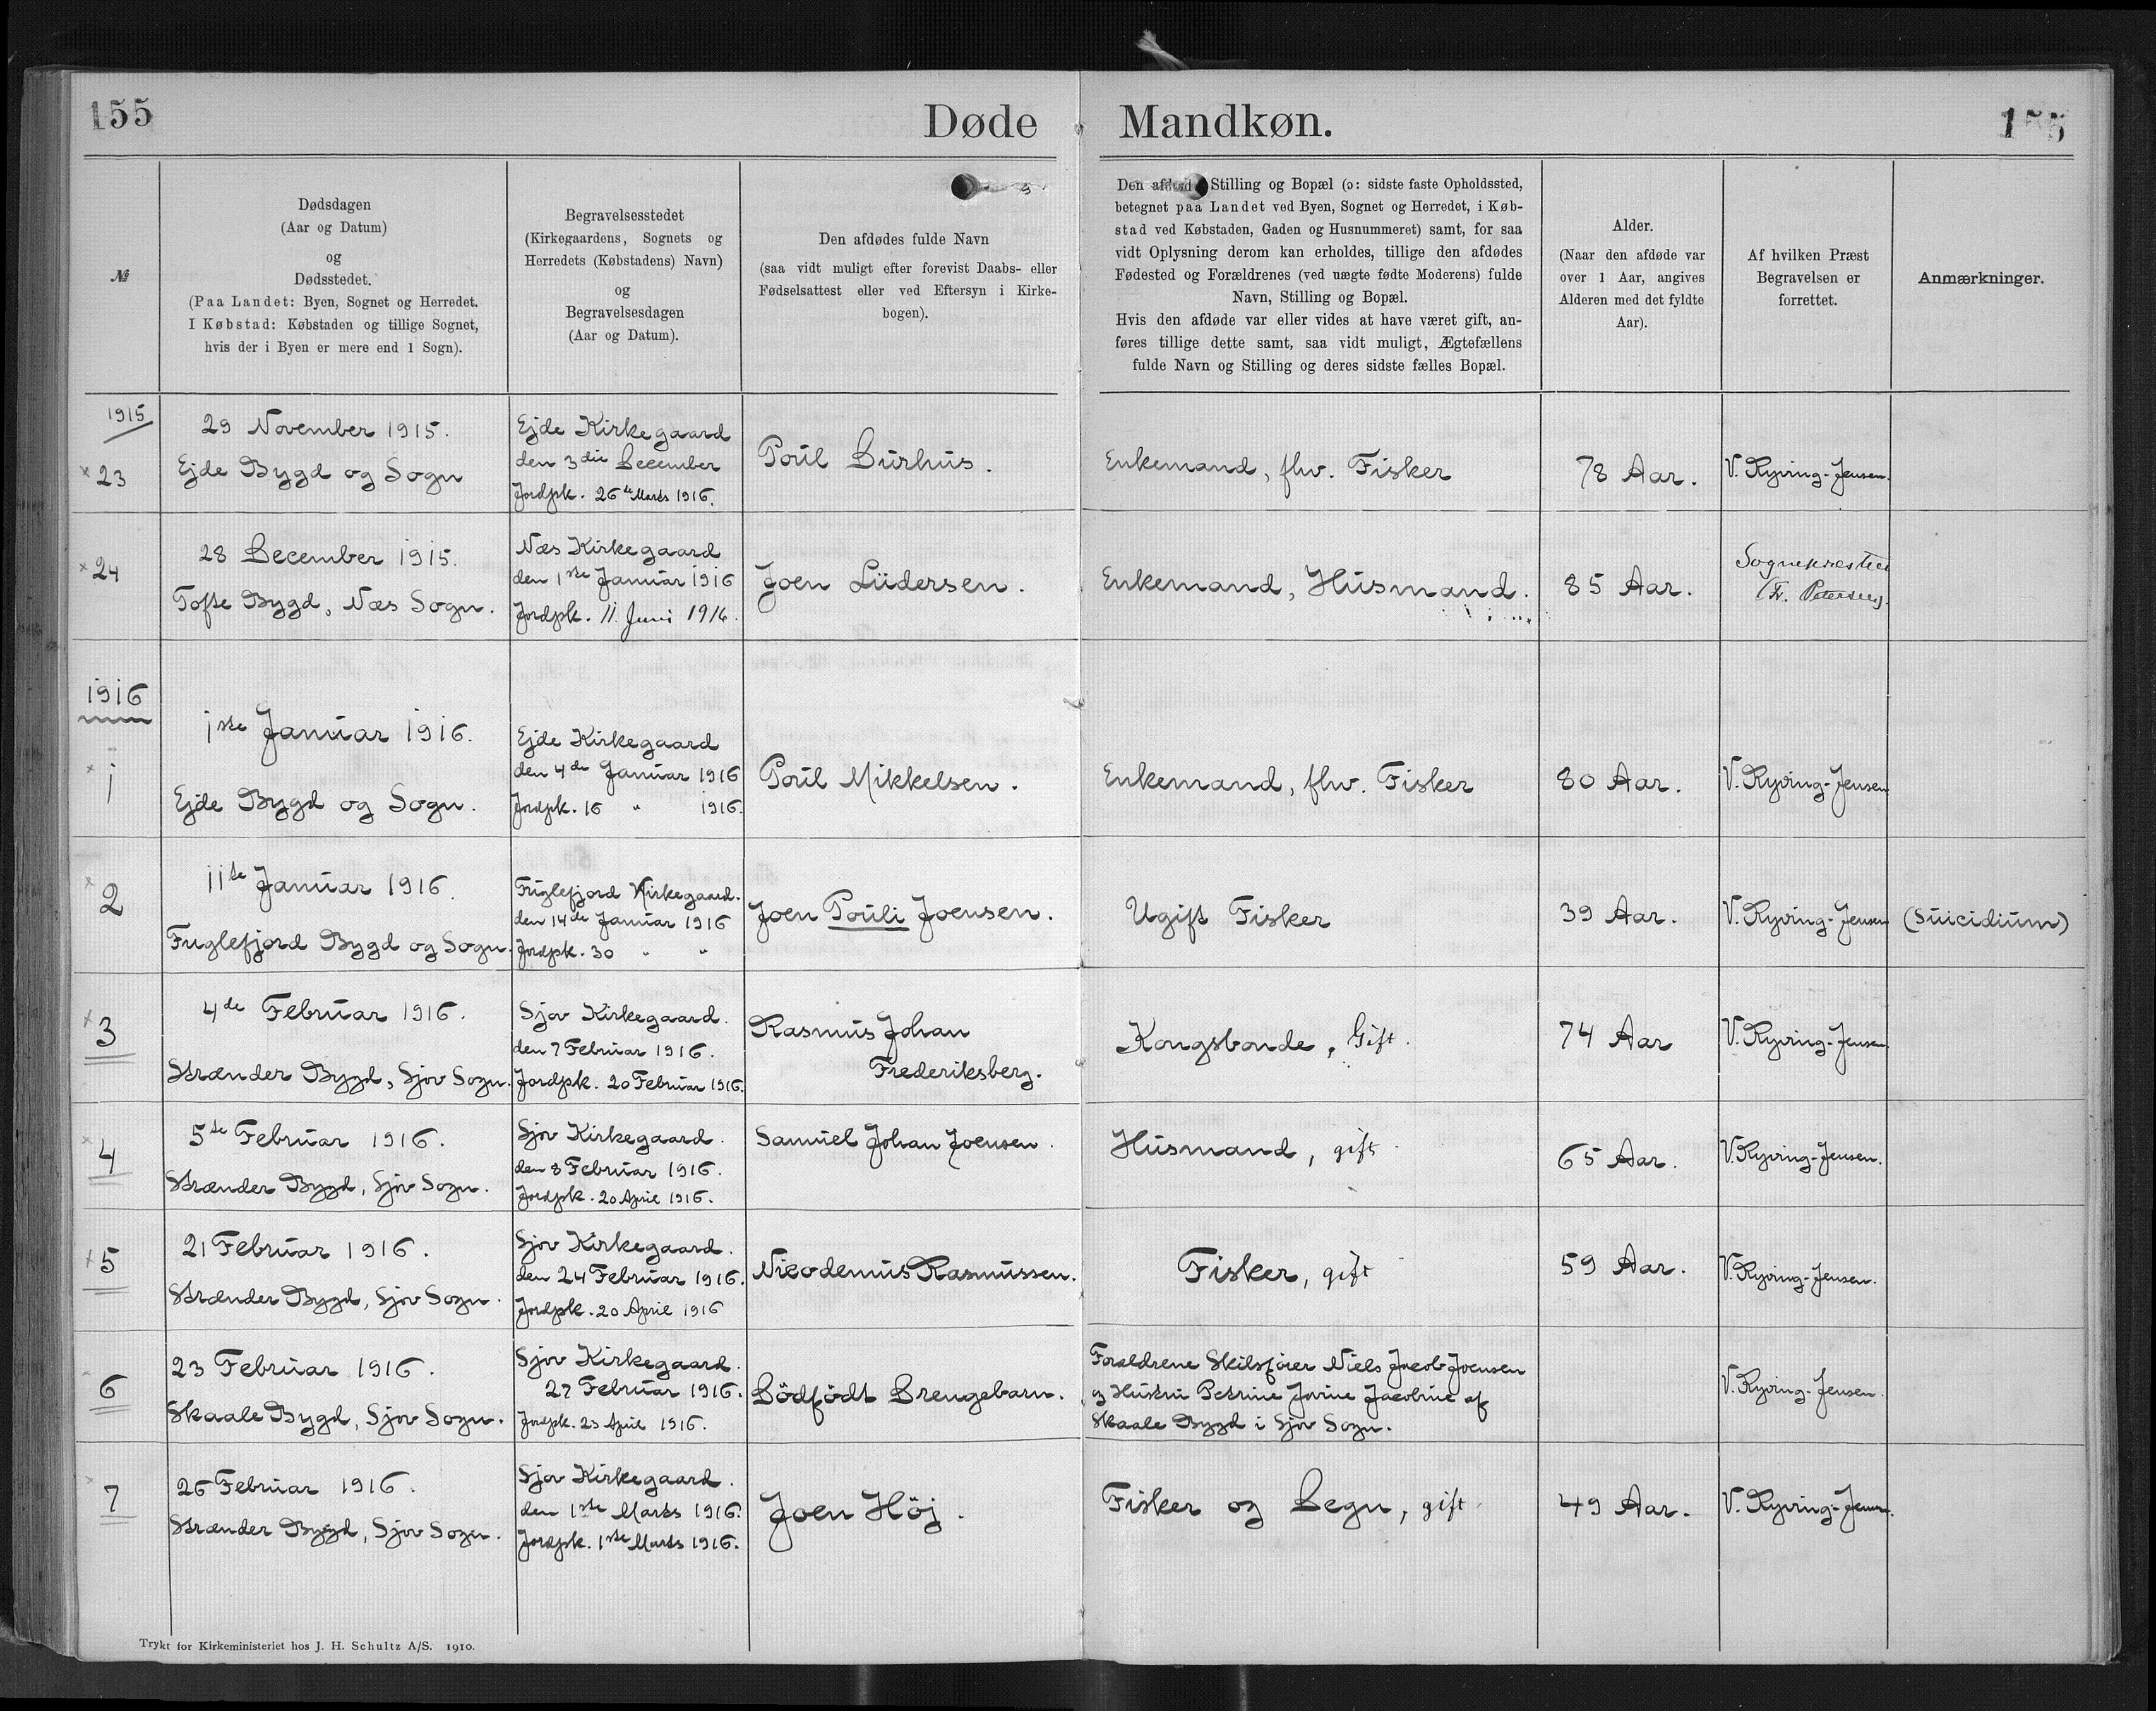 155
Døde Mandkøn.
155
№
Dødsdagen
(Aar og Datum)
og
Dødsstedet.
(Paa Landet: Byen, Sognet og Herredet.
I Købstad: Købstaden og tillige Sognet,
hvis der i Byen er mere end 1 Sogn).
Begravelsesstedet
(Kirkegaardens, Sognets og
Herredets (Købstadens) Navn)
og
Begravelsesdagen
(Aar og Datum).
Den afdødes fulde Navn
(saa vidt muligt efter forevist Daabs- eller
Fødselsattest eller ved Eftersyn i Kirke-
bogen).
Den afdødes Stilling og Bopæl (ɔ: sidste faste Opholdssted,
betegnet paa Landet ved Byen, Sognet og Herredet, i Køb-
stad ved Købstaden, Gaden og Husnummeret) samt, for saa
vidt Oplysning derom kan erholdes, tillige den afdødes
Fødested og Forældrenes (ved uægte fødte Moderens) fulde
Navn, Stilling og Bopæl.
Hvis den afdøde var eller vides at have været gift, an-
føres tillige dette samt, saa vidt muligt, Ægtefællens
fulde Navn og Stilling og deres sidste fælles Bopæl.
Alder.
(Naar den afdøde var
over 1 Aar, angives
Alderen med det fyldte
Aar).
Af hvilken Præst
Begravelsen er
forrettet.
Anmærkninger.
1915
× 23
29 November 1915.
Ejde Bygd og Sogn
Ejde Kirkegaard
den 3die December
Jordpk. 26de Marts 1916.
Poúl Dúrhús.
Enkemand, fhv. Fisker
78 Aar.
V. Ryving-Jensen.
× 24
28 December 1915.
Tofte Bygd, Næs Sogn.
Næs Kirkegaard
den 1ste Januar 1916
Jordpk. 11. Juni 1916.
Joen Lüdersen.
Enkemand, Húsmand.
85 Aar.
Sognepræsten
Fr. Petersen.
1916
× 1
1ste Januar 1916.
Ejde Bygd og Sogn.
Ejde Kirkegaard
den 4de Januar 1916
Jordpk. 16 " 1916.
Poúl Mikkelsen.
Enkemand, fhv. Fisker
80 Aar.
V. Ryving-Jensen
× 2
11te Januar 1916.
Fuglefjord Bygd og Sogn.
Fúglefjord Kirkegaard.
den 14de Januar 1916
Jordpk. 30 " "
Joen Poúli Joensen.
Ugift Fisker
39 Aar.
V. Ryving-Jensen
(Súicidiúm)
× 3
4de Februar 1916.
Strænder Bygd, Sjov Sogn.
Sjov Kirkegaard.
den 7 Februar 1916.
Jordpk. 20 Februar 1916.
Rasmús Johan
Frederiksberg.
Kongsbonde, Gift.
74 Aar
V. Ryving-Jensen.
× 4
5te Februar 1916.
Strænder Bygd, Sjov Sogn.
Sjov Kirkegaard.
den 8 Februar 1916.
Jordpk. 20 April 1916.
Samúel Johan Joensen.
Húsmand, gift
65 Aar.
V. Ryving-Jensen.
× 5
21 Februar 1916.
Strænder Bygd, Sjov Sogn.
Sjov Kirkegaard.
den 24 Februar 1916.
Jordpk. 20 April 1916
Nicodemús Rasmússen.
Fisker, gift
59 Aar.
V. Ryving-Jensen.
6
23 Februar 1916.
Skaale Bygd, Sjov Sogn.
Sjov Kirkegaard.
27 Februar 1916.
Jordpk. 23 April 1916.
Dödfödt Drengebarn.
Forældrene Skibsfører Niels Jacob Joensen
og Hústrú Petrine Jovine Jacobine af
Skaale Bygd i Sjov Sogn.
V. Ryving-Jensen.
× 7
26 Februar 1916.
Strænder Bygd, Sjov Sogn.
Sjov Kirkegaard.
den 1ste Marts 1916.
Jordpk. 1ste Marts 1916.
Joen Höj.
Fisker og Degn, gift
49 Aar.
V. Ryving-Jensen.
Trykt for Kirkeministeriet hos J. H. Schultz A/S. 1910.